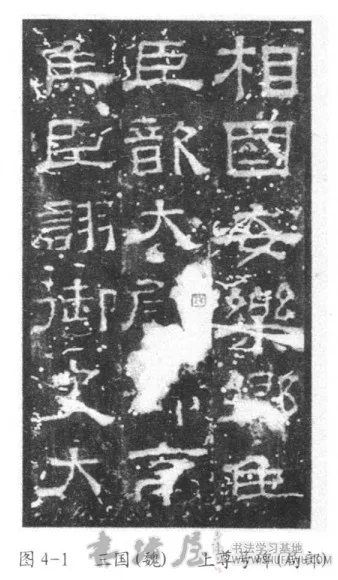 相國安樂鄉侯
臣歆大尉亭
侯臣詡御史大
图 4-1 三国(魏) 上尊号碑(局部)
書法屋
书法学习基地
WWW.SHUFAWU.COM